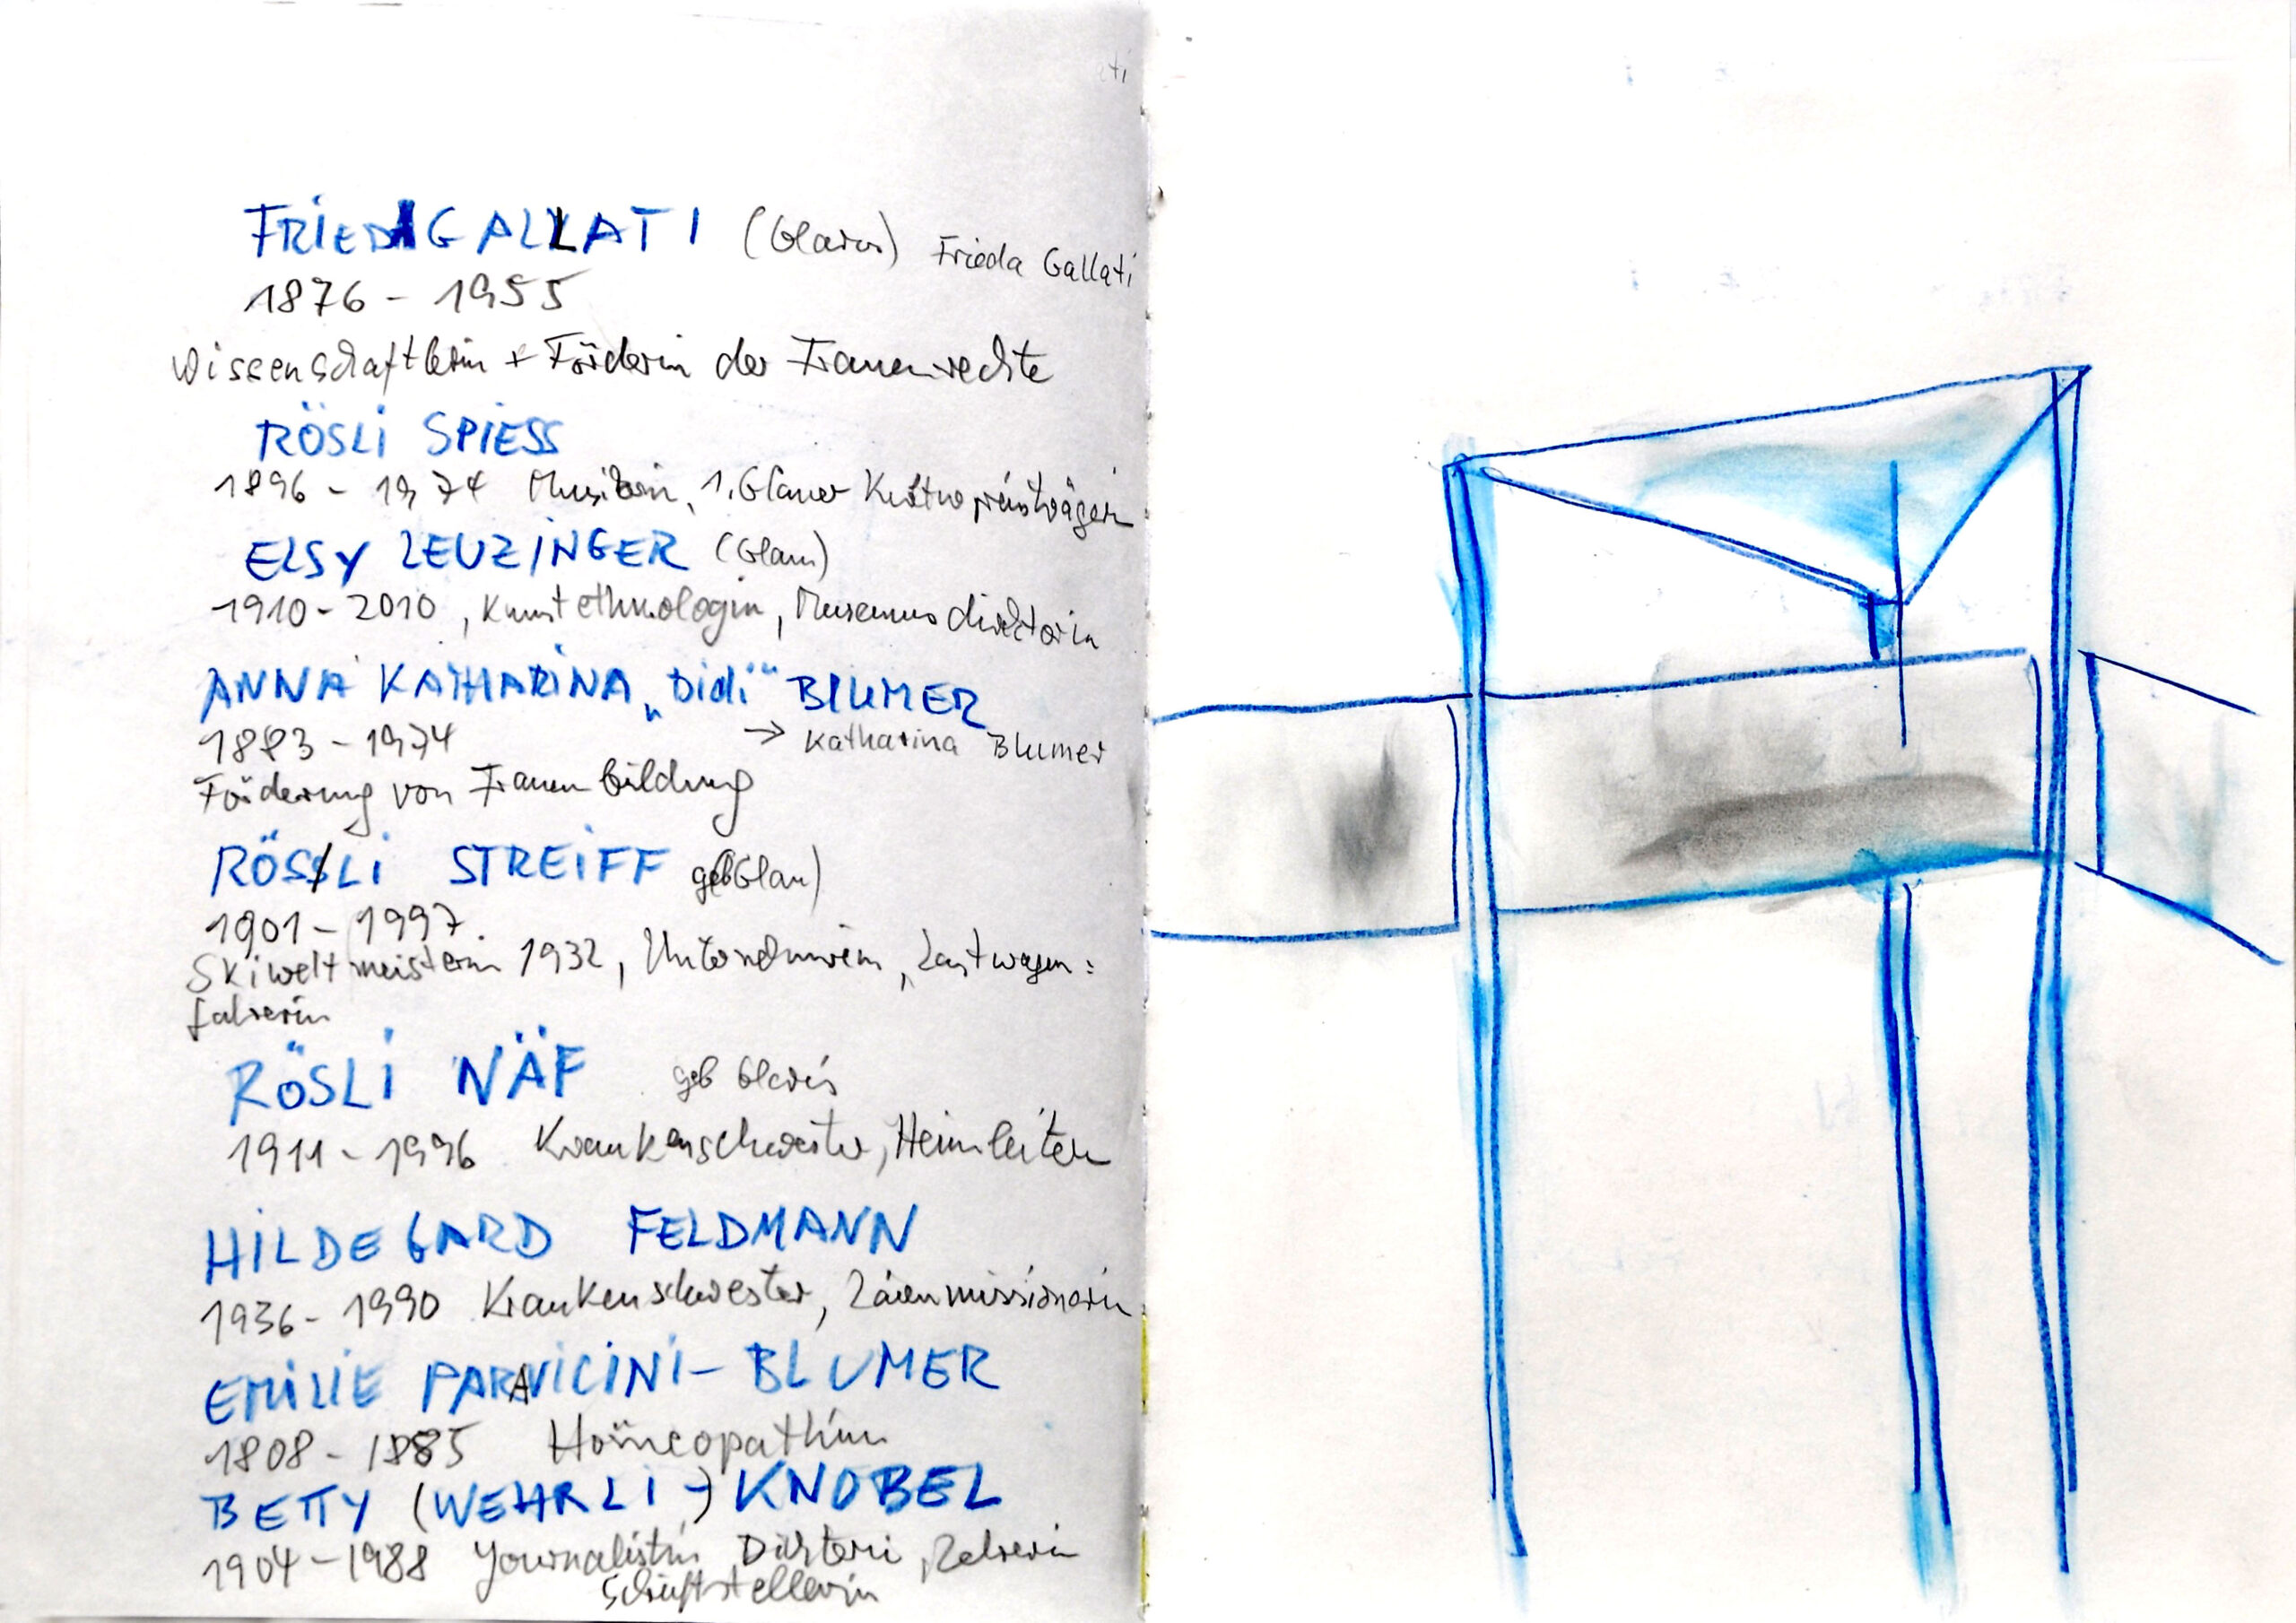 FRIEDA GALLATI (Glarus) Frieda Gallati
1876 - 1955
Wissenschaftlerin + Förderin der Frauenrechte
RÖSLI SPIESS
1896 - 1974 Musikerin, 1. Glarner Kulturpreisträgerin
ELSY LEUZINGER (Glarus)
1910 - 2010, Kunstethnologin, Museumsdirektorin
ANNA KATHARINA „Didi“ BLUMER
1883 - 1974 → Katharina Blumer
Förderung von Frauenbildung
RÖSLI STREIFF geb Glarus)
1901 - 1997
Skiweltmeisterin 1932, Unternehmerin, Lastwagen=
fahrerin
RÖSLI NÄF geb Glarus
1911 - 1996 Krankenschwester, Heimleiterin
HILDEGARD FELDMANN
1936 - 1990 Krankenschwester, Laienmissionarin
EMILIE PARAVICINI-BLUMER
1808 - 1885 Homöopathin
BETTY (WEHRLI-) KNOBEL
1904 - 1988 Journalistin Dichterin, Lehrerin
Schriftstellerin